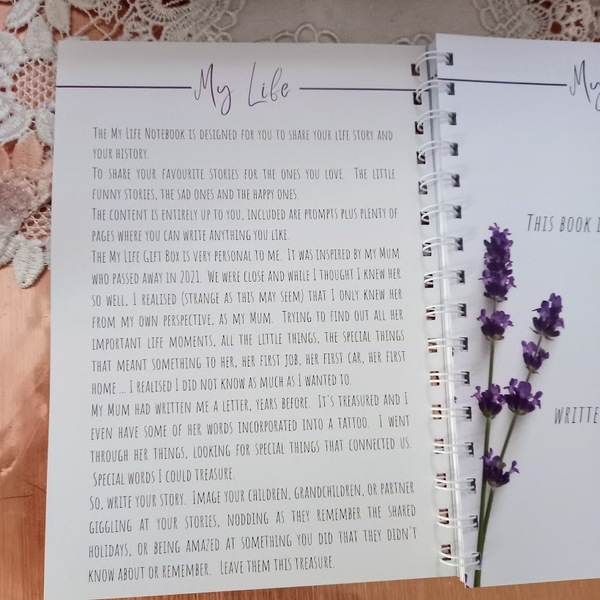 My Life
The My Life Notebook is designed for you to share your life story and
your history.
To share your favourite stories for the ones you love. The little
funny stories, the sad ones and the happy ones.
The content is entirely up to you, included are prompts plus plenty of
pages where you can write anything you like.
The My Life Gift Box is very personal to me. It was inspired by my Mum
who passed away in 2021. We were close and while I thought I knew her
so well, I realised (strange as this may seem) that I only knew her
from my own perspective, as my Mum. Trying to find out all her
important life moments, all the little things, the special things
that meant something to her, her first job, her first car, her first
home ... I realised I did not know as much as I wanted to.
My Mum had written me a letter, years before. It's treasured and I
even have some of her words incorporated into a tattoo. I went
through her things, looking for special things that connected us.
Special words I could treasure.
So, write your story. Image your children, grandchildren, or partner
giggling at your stories, nodding as they remember the shared
holidays, or being amazed at something you did that they didn't
know about or remember. Leave them this treasure.
My
This book i
writte